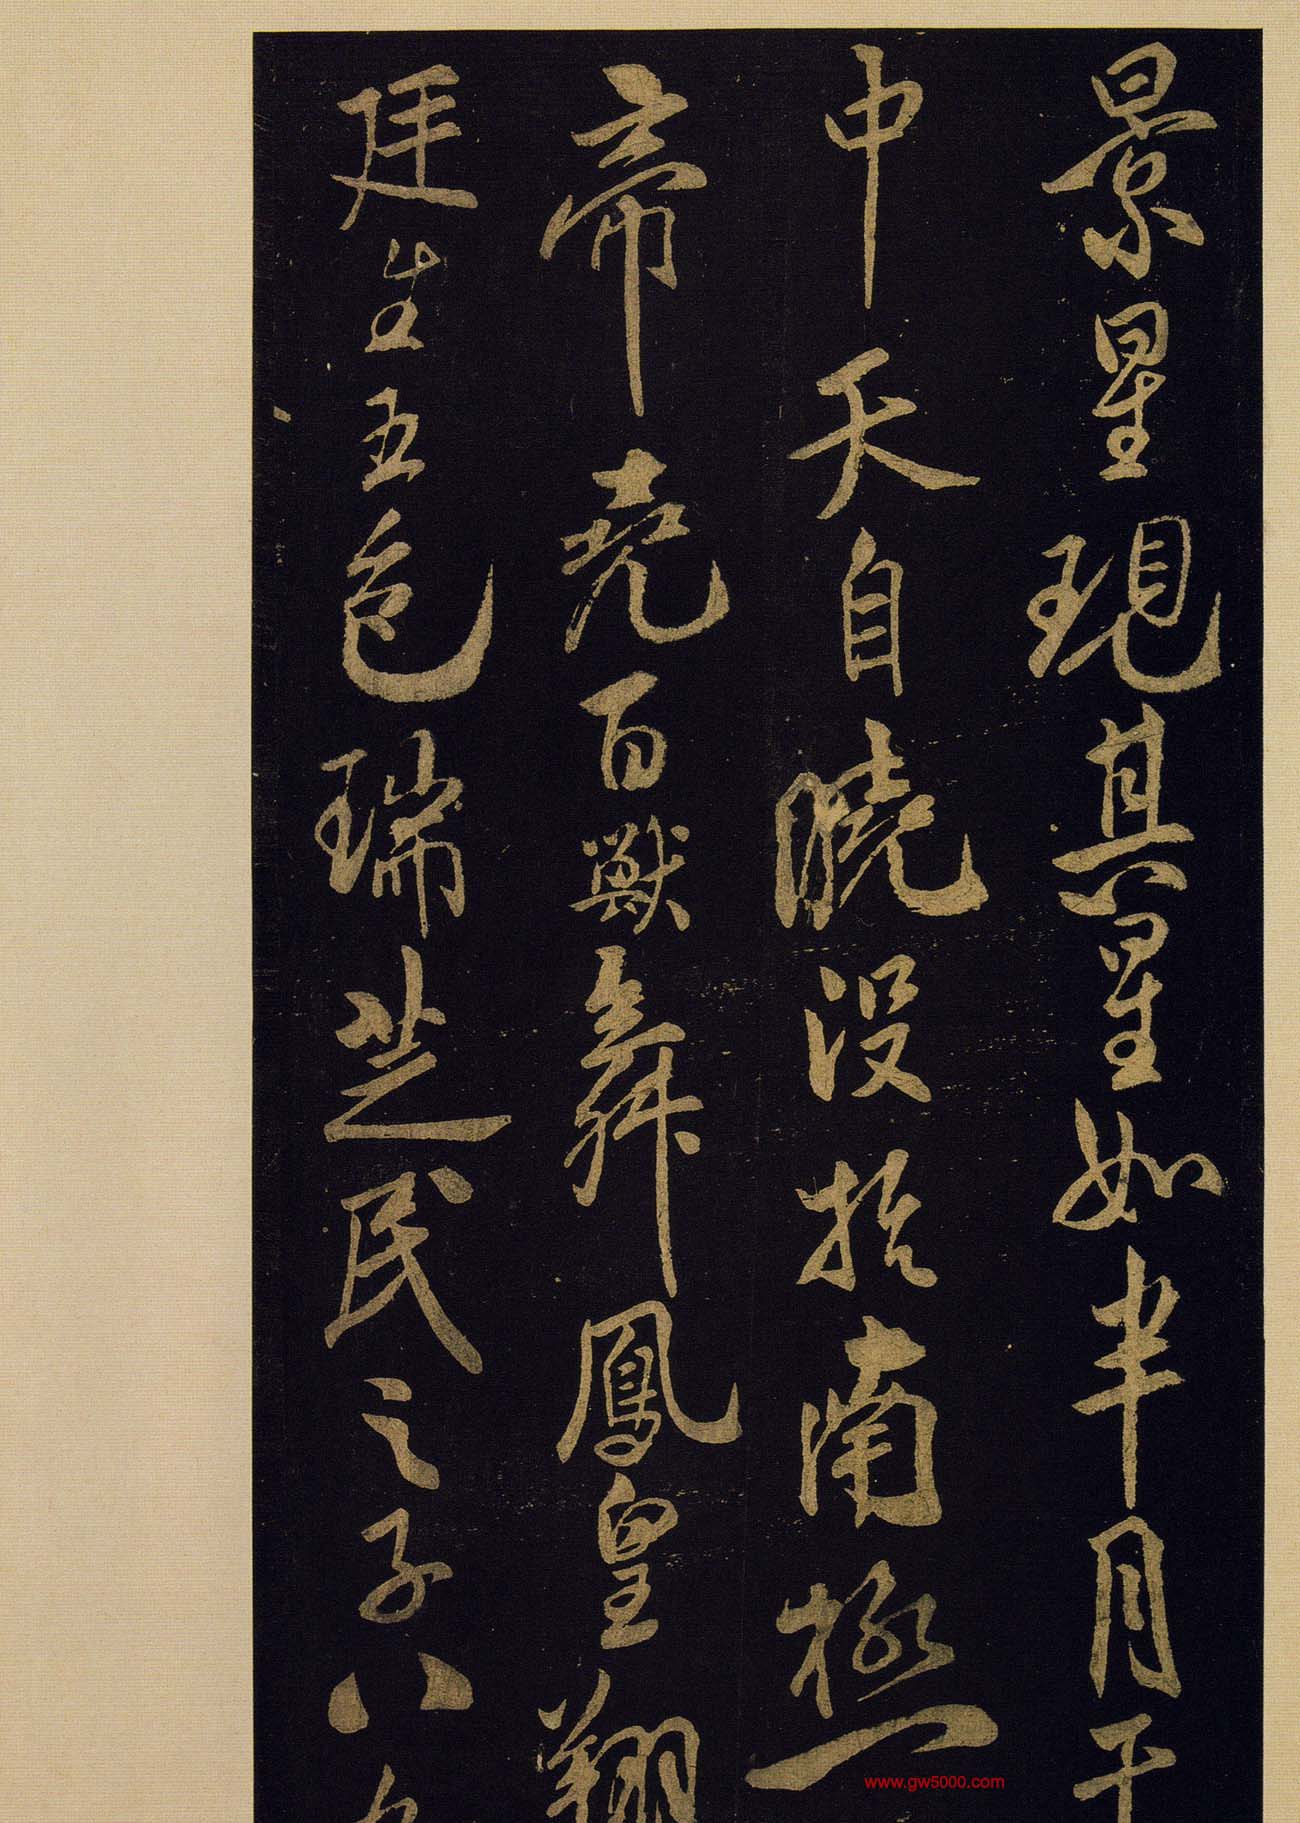 景星現其星如半月于
中天自曉没於南極
帝堯百獸舞鳳皇翔
廷生五色瑞芝民之子八
www.gw5000.com